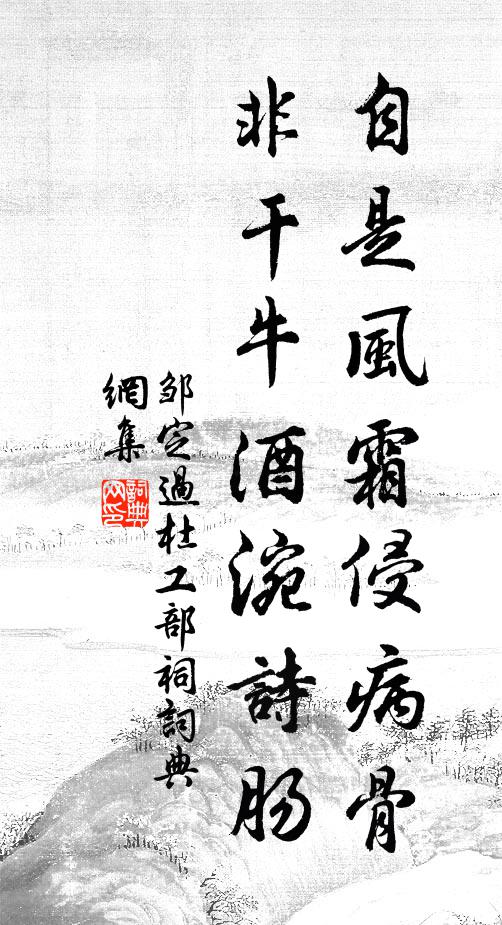 自是風霜侵病骨
非干牛酒涴詩肠
邹定過杜工部祠詞典
網集
詞典
网印